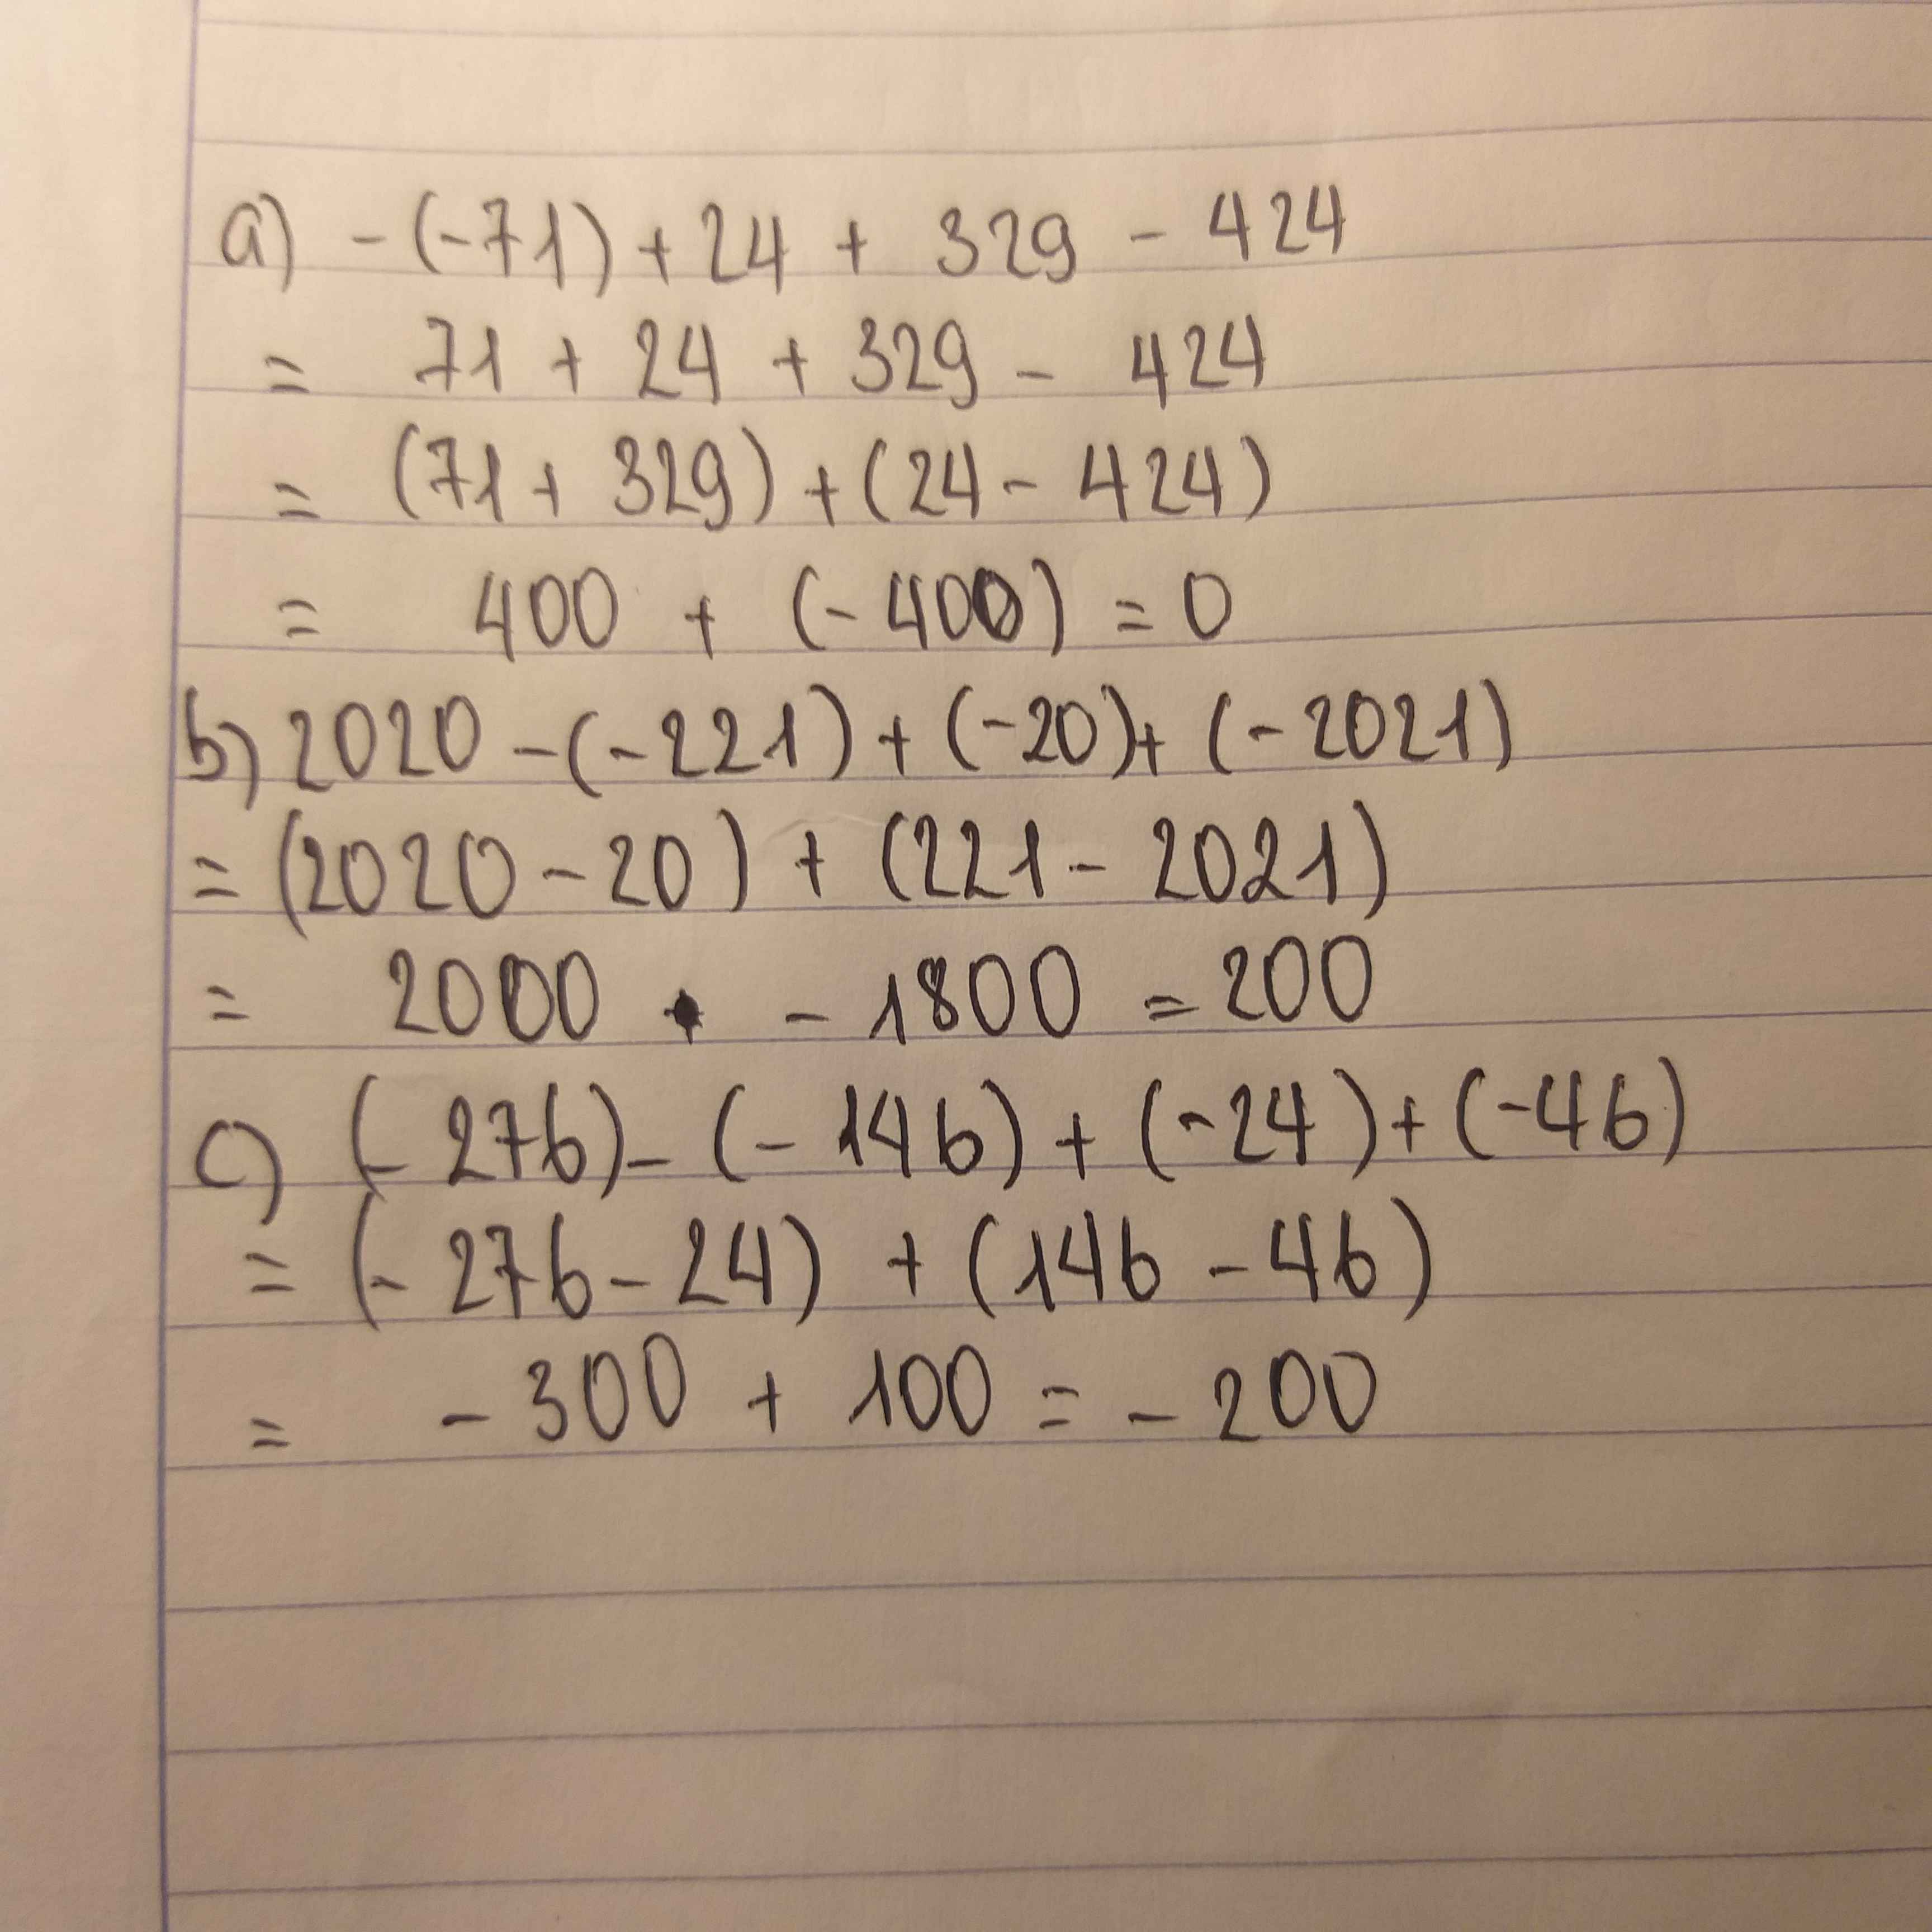 a) -(-71) + 24 + 329 - 424
= 71 + 24 + 329 - 424
= (71 + 329) + (24 - 424)
= 400 + (-400) = 0
b) 2020 - (-221) + (-20) + (-2021)
= (2020 - 20) + (221 - 2021)
= 2000 - 1800 = 200
c) (-276) - (-146) + (-24) + (-46)
= (-276 - 24) + (146 - 46)
= -300 + 100 = -200